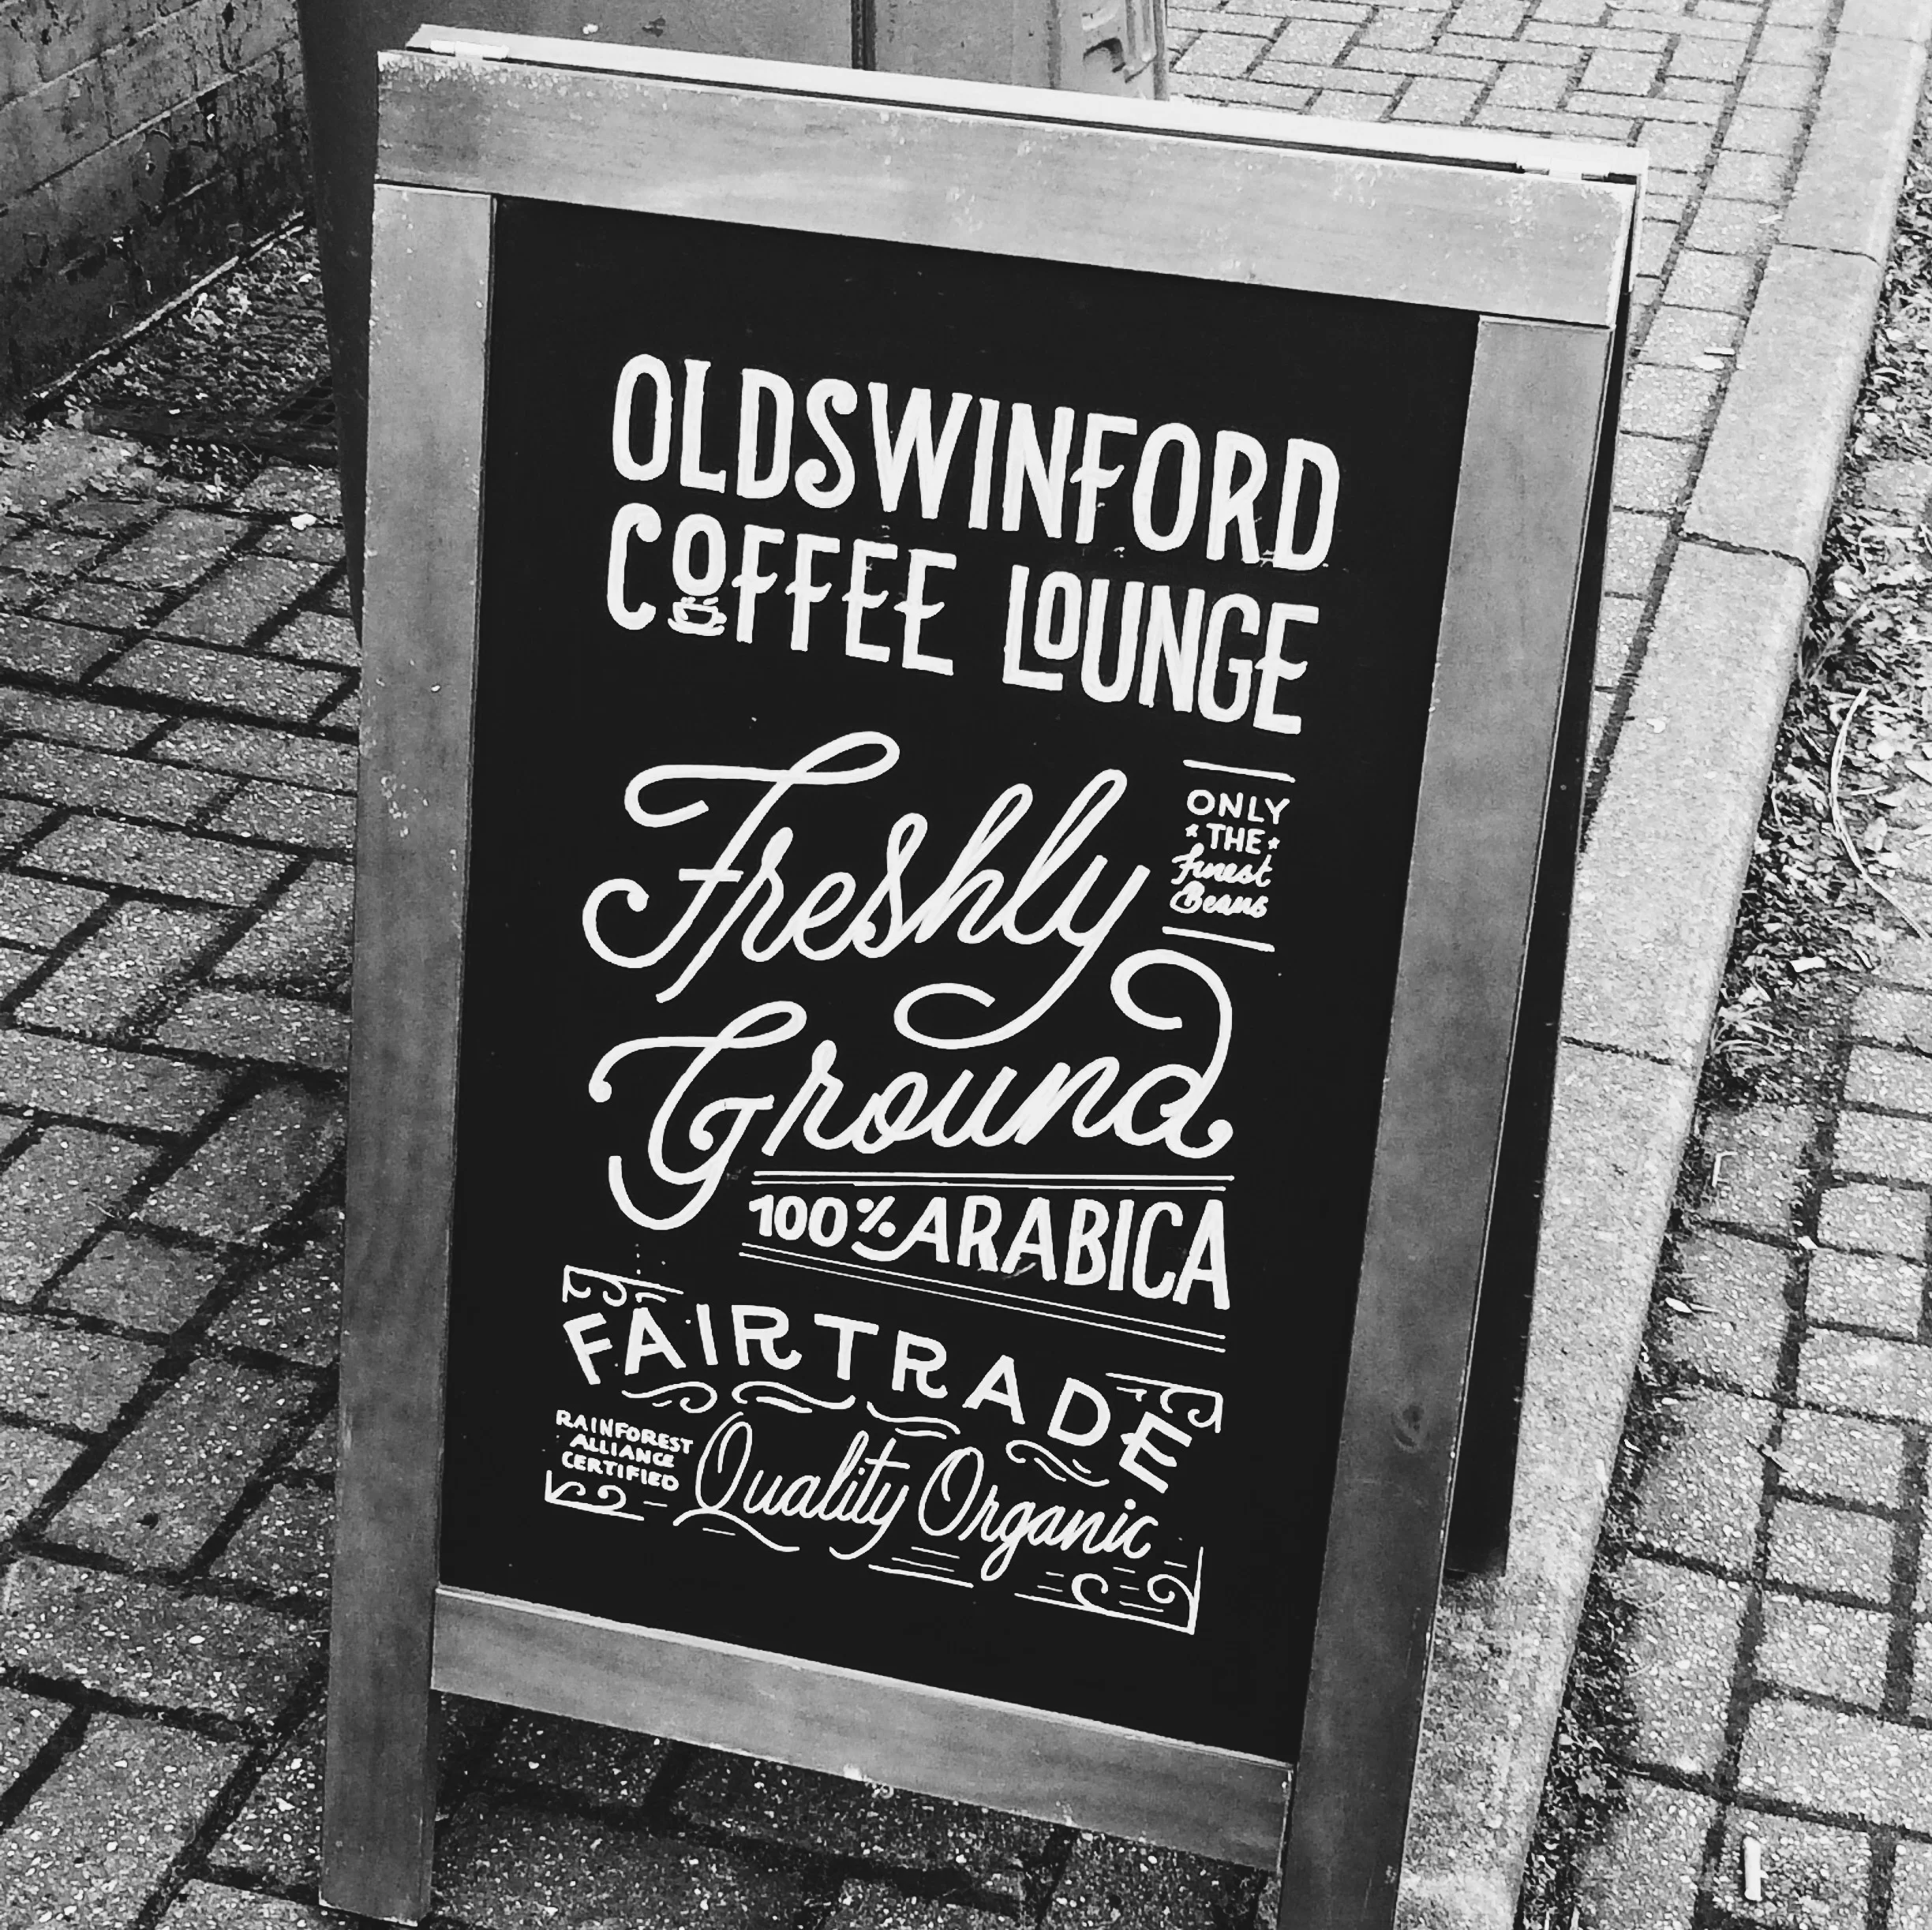 OLDSWINFORD
COFFEE LOUNGE
Freshly
ONLY
THE
Finest
Beans
Ground
100% ARABICA
FAIRTRADE
RAINFOREST
ALLIANCE
CERTIFIED
Quality Organic